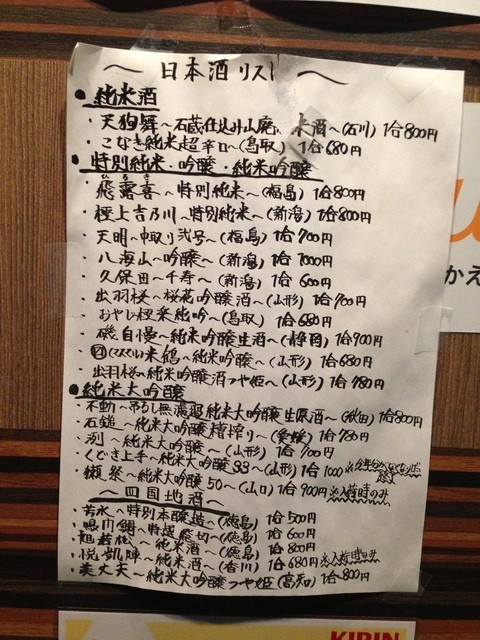 〜 日本酒リスト 〜
●純米酒
・天狗舞〜石蔵仕込み山廃 米酒〜(石川) 1合800円
・こなき純米超辛口〜(鳥取) 1合680円
●特別純米・吟醸・純米吟醸
・飛露喜〜特別純米〜(福島) 1合800円
・極上吉乃川〜特別純米〜(新潟) 1合800円
・天明〜中取り弐号〜(福島) 1合700円
・八海山〜吟醸〜(新潟) 1合1000円
・久保田〜千寿〜(新潟) 1合600円
・出羽桜〜桜花吟醸酒〜(山形) 1合700円
・おやじ極楽純吟〜(鳥取) 1合680円
・磯自慢〜純米吟醸生酒〜(静岡) 1合900円
米鶴〜純米吟醸〜(山形) 1合680円
・出羽桜〜純米吟醸酒つや姫〜(山形) 1合780円
●純米大吟醸
・不動〜吊るし無濾過純米大吟醸生原酒〜(秋田) 1合800円
・石鎚〜純米大吟醸槽搾り〜(愛媛) 1合780円
・洌〜純米大吟醸〜(山形) 1合700円
・くどき上手〜純米大吟醸33〜(山形) 1合1000
・獺祭〜純米大吟醸50〜(山口) 1合900円※入荷時のみ
〜四国地酒〜
・芳水〜特別本醸造〜(徳島) 1合500円
・鳴門鯛〜特醸急切〜(徳島) 1合600円
純米酒〜(徳島) 1合800円
・悦凱陣〜純米酒〜(香川) 1合680円※入荷時のみ
・美丈夫〜純米大吟醸つや姫(高知) 1合800円
かえ
KIRIN